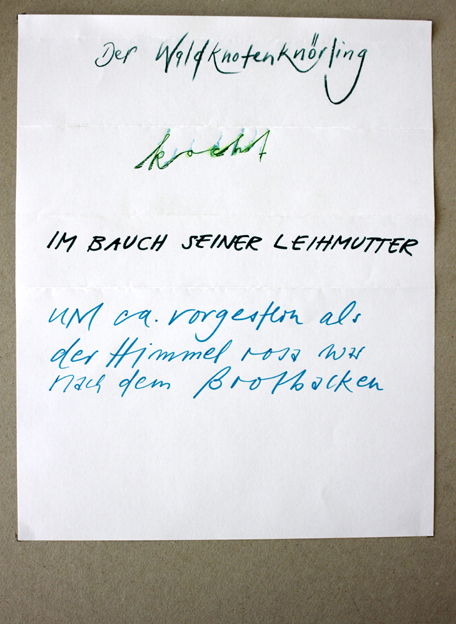 Der Waldknotenknörling
kocht
IM BAUCH SEINER LEIHMUTTER
UM ca. vorgestern als
der Himmel rosa war
nach dem Brotbacken